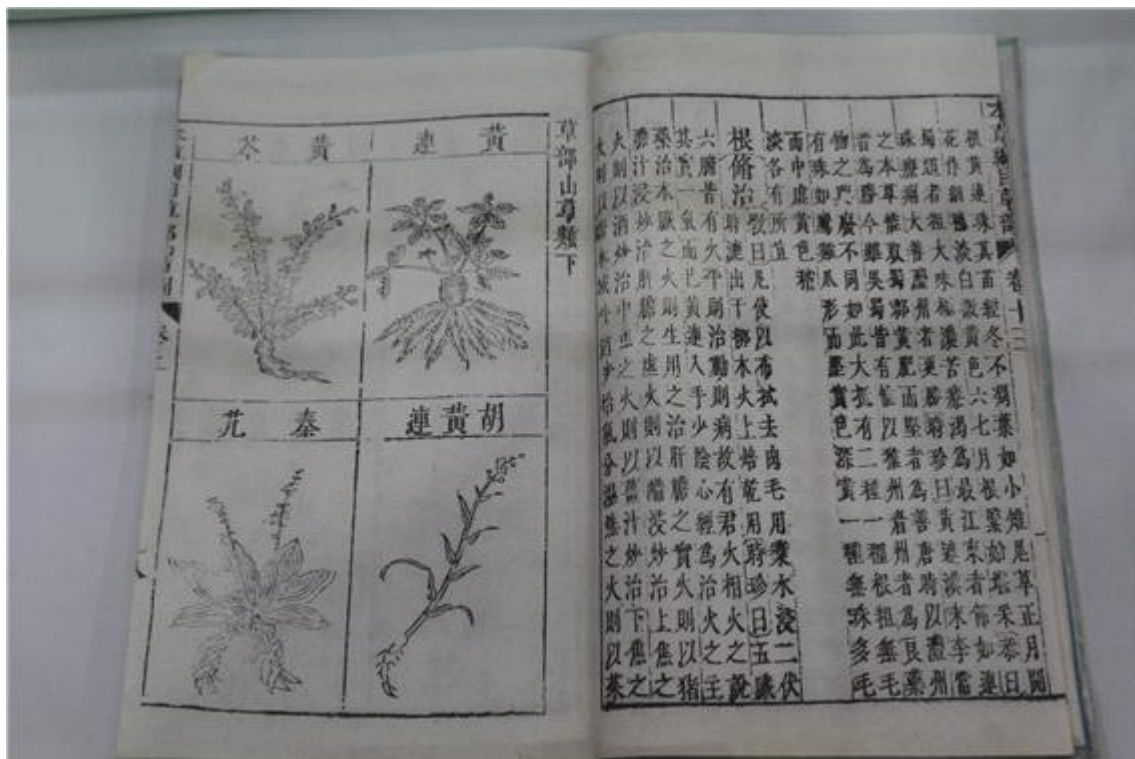 本草綱目草部 卷十三
根黃連珠其苗經冬不凋葉如小雉尾草正月開
花作細穗淡白微黃色六七月根緊始堪采恭曰
蜀道者粗大味極濃苦療渴為最江東者節如連
珠療痢大善澧州者更勝時珍曰黃連漢末李當
之本草惟取蜀郡黃肥而堅者為善唐時以澧州
者為勝今雖吳蜀皆有惟以雅州者為良藥
物之興廢不同如此大抵有二種一種根粗無毛
有珠如鷹雞爪形而堅實色深黃一種無珠多毛
而中虛黃色稍
淡各有所宜
根脩治斅曰凡使以布拭去肉毛用漿水浸二伏
時漉出于柳木火上焙乾用時珍曰五臟
六腑皆有火平則治動則病故有君火相火之說
其實一氣而已黃連入手少陰心經為治火之主
藥治本臟之火則生用之治肝膽之實火則以猪
膽汁浸炒治肝膽之虛火則以醋浸炒治上焦之
火則以酒炒治中焦之火則以薑汁炒治下焦之
火則以水或炒治氣分濕熱之火則以茱
草部山草類下
黃連
黃芩
胡黃連
秦艽